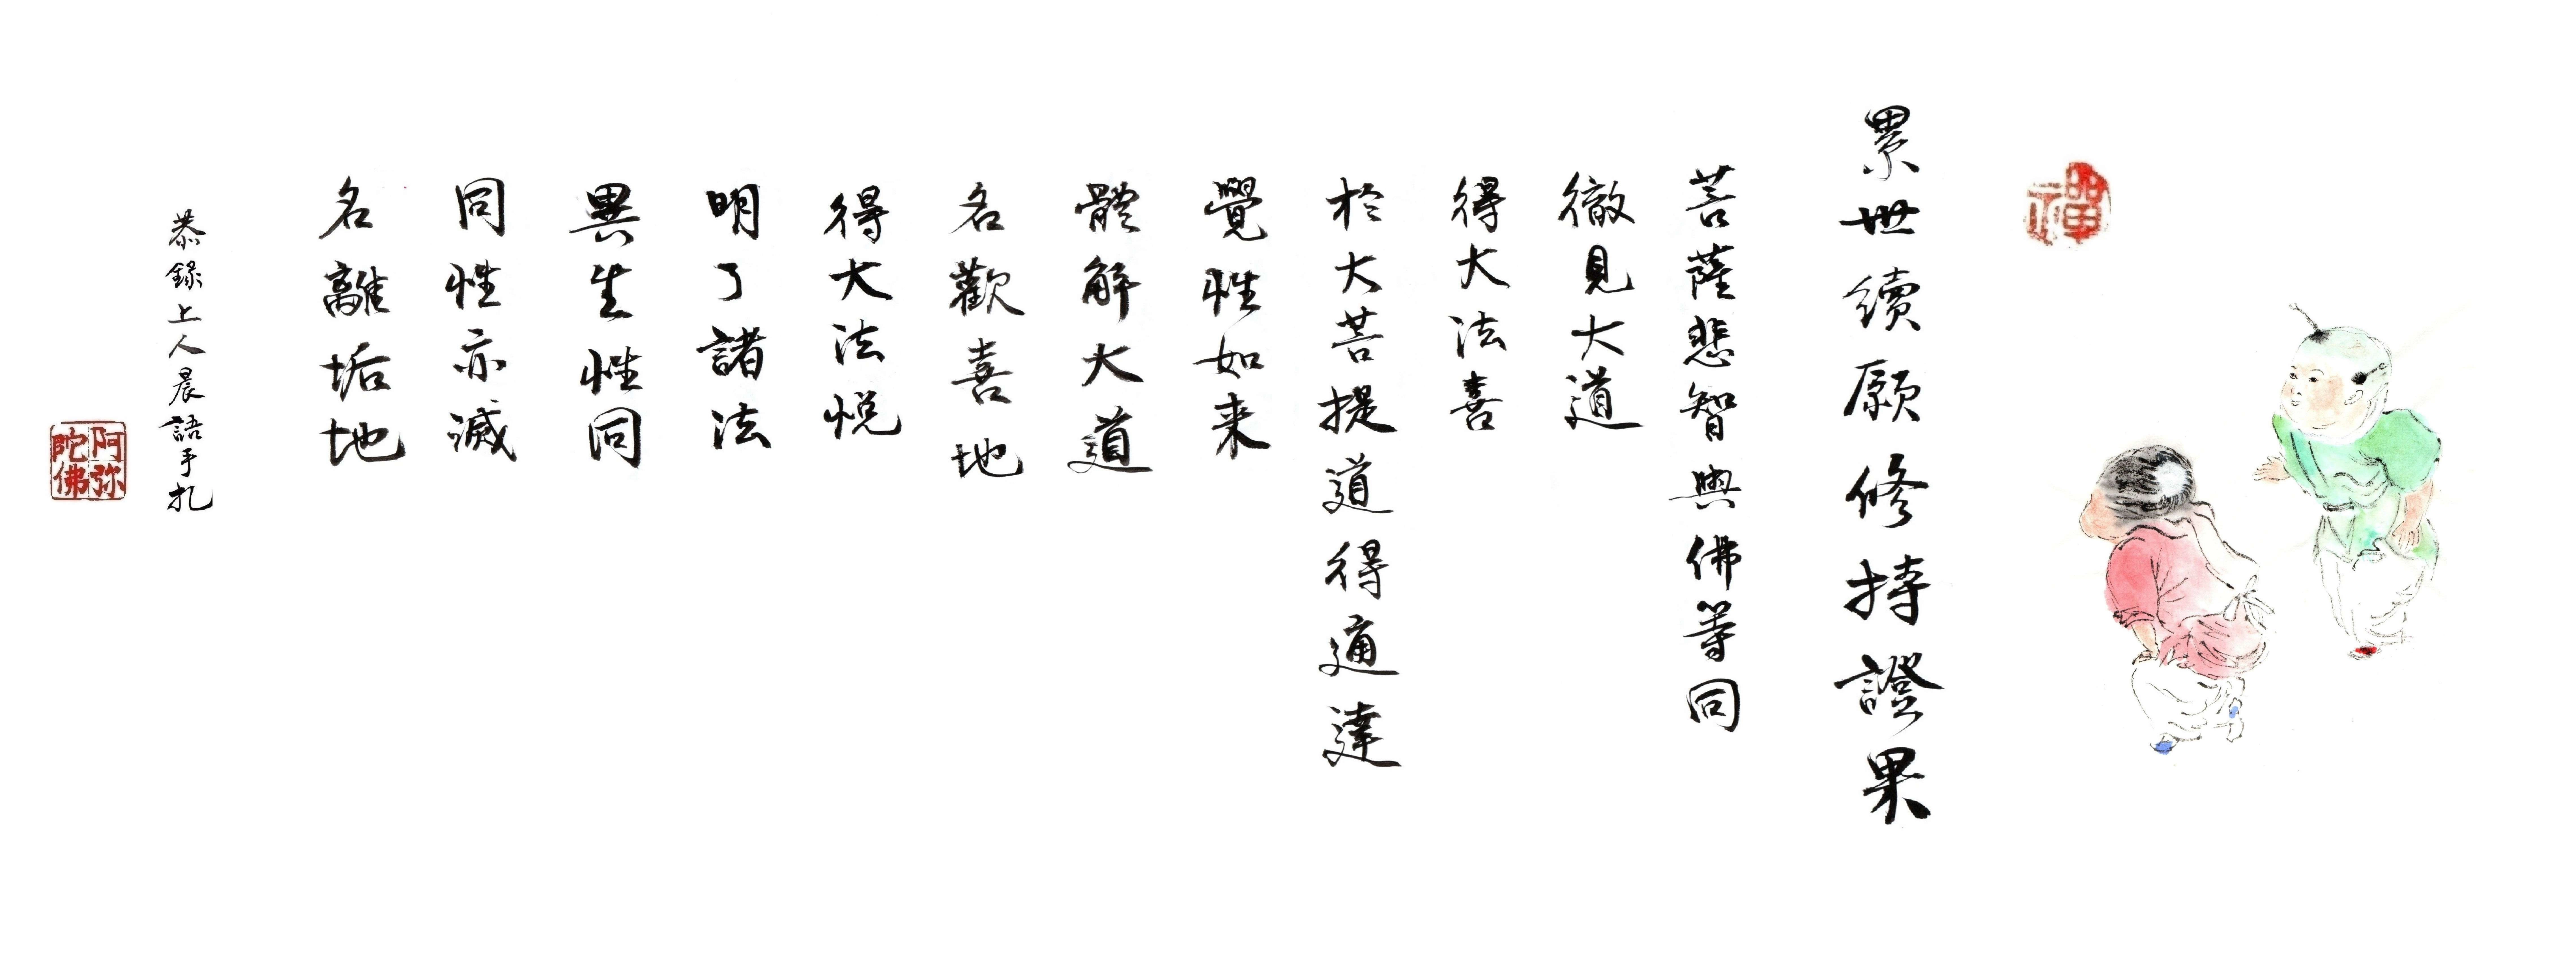 禪
累世續願修持證果
菩薩悲智與佛等同
徹見大道
得大法喜
於大菩提道得通達
覺性如来
體解大道
名歡喜地
得大法悅
明了諸法
異生性同
同性亦滅
名離垢地
恭錄上人晨語手札
阿弥陀佛